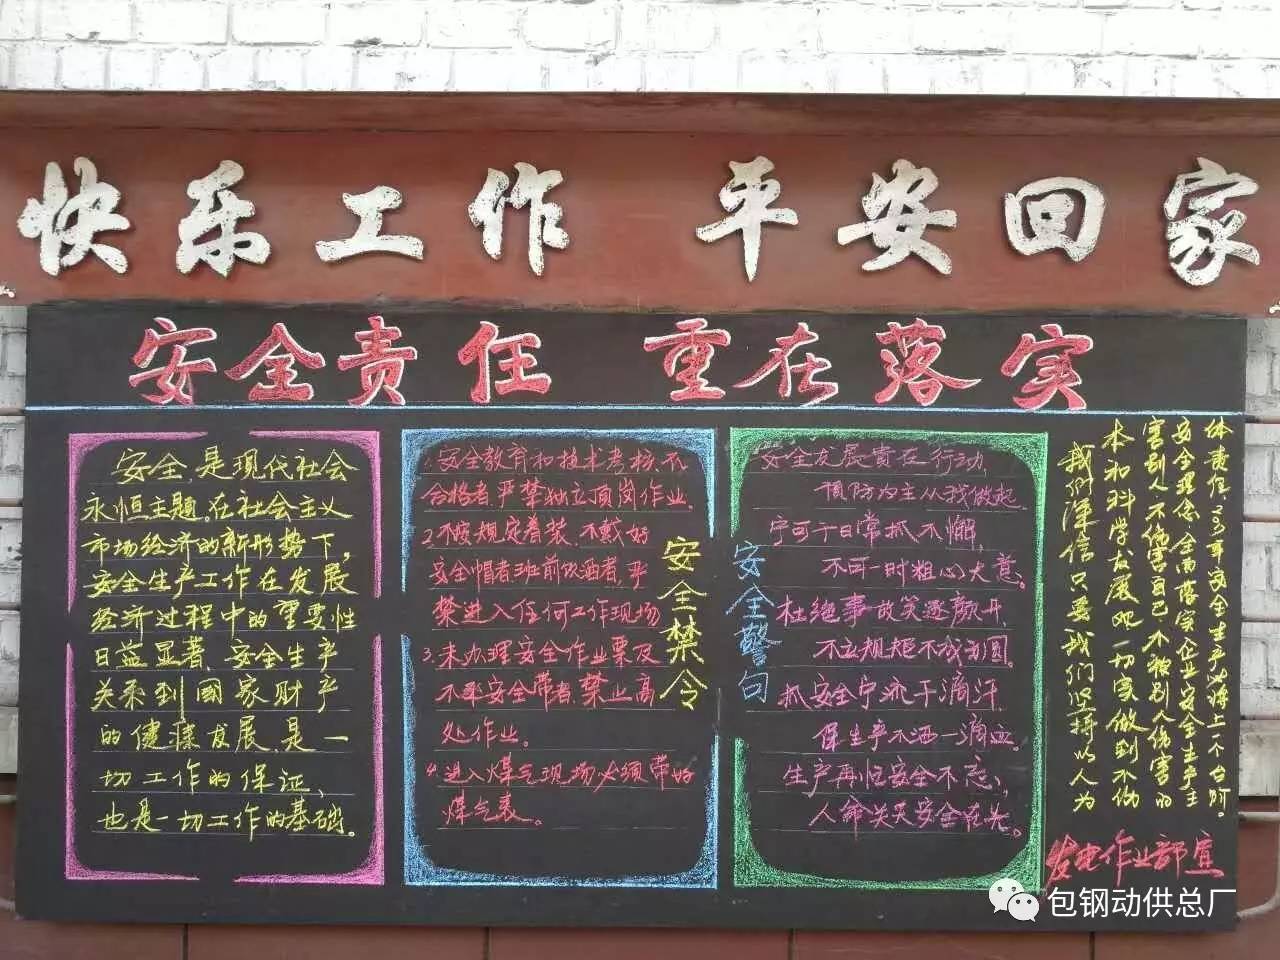 快乐工作 平安回家
安全责任 重在落实
安全,是现代社会
永恒主题。在社会主义
市场经济的新形势下,
安全生产工作在发展
经济过程中的重要性
日益显著,安全生产
关系到国家财产
的健康发展,是一
切工作的保证、
也是一切工作的基础。
安全禁令
1.安全教育和技术考核不
合格者,严禁独立顶岗作业。
2.不按规定着装、不戴好
安全帽者班前饮酒者,严
禁进入任何工作现场
3.未办理安全作业票及
不系安全带者,禁止高
处作业。
4.进入煤气现场必须带好
煤气表。
安全警句
安全发展贵在行动,
预防为主从我做起。
宁可千日常抓不懈,
不可一时粗心大意。
杜绝事故笑逐颜开,
不立规矩不成方圆。
抓安全宁流千滴汗,
保生产不洒一滴血。
生产再忙安全不忘,
人命关天安全在先。
我们深信只要我们坚持以人为
本和科学发展观,一切家做到不伤
害别人、不伤害自己、不被别人伤害的
安全理念,全面落实企业安全生产主
体责任,安全生产必将上一个台阶。
发电作业部宣
包钢动供总厂